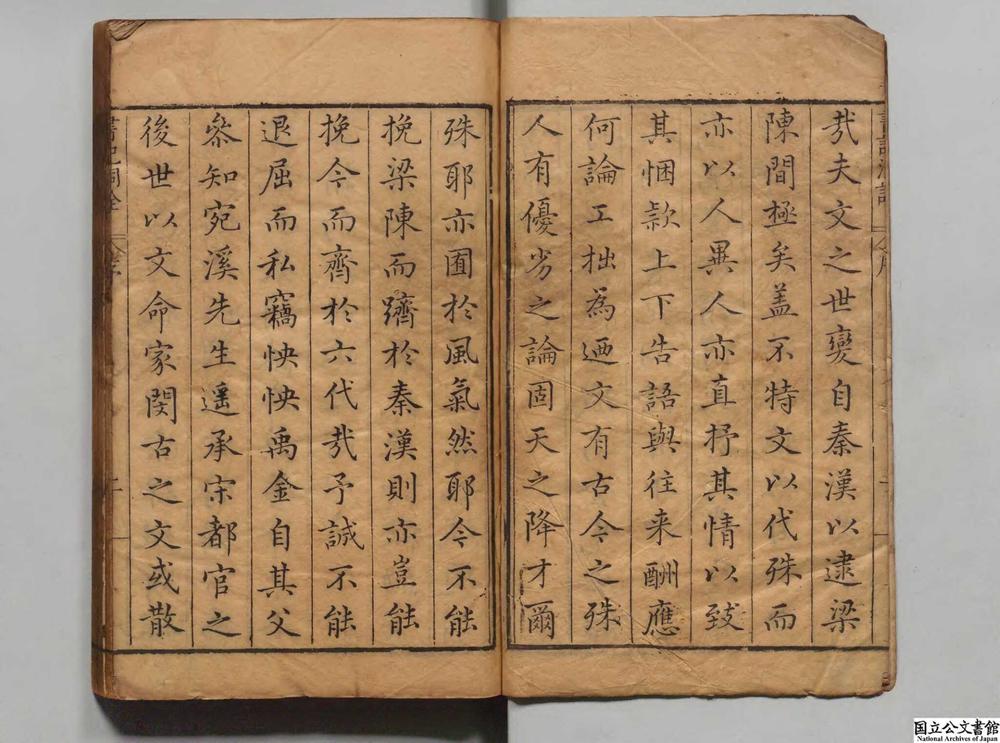 哉夫文之世變自秦漢以逮梁
陳間極矣葢不特文以代殊而
亦以人異人亦直抒其情以致
其悃款上下告語與往来酬應
何論工拙為迺文有古今之殊
人有優劣之論固天之降才爾
殊耶亦囿於風氣然耶今不能
挽梁陳而躋於秦漢則亦豈能
挽今而齊於六代哉予誠不能
退屈而私竊怏怏禹金自其父
叅知宛溪先生遥承宋都官之
後世以文命家閔古之文或散
書記洞詮
序
国立公文書館
National Archives of Japan